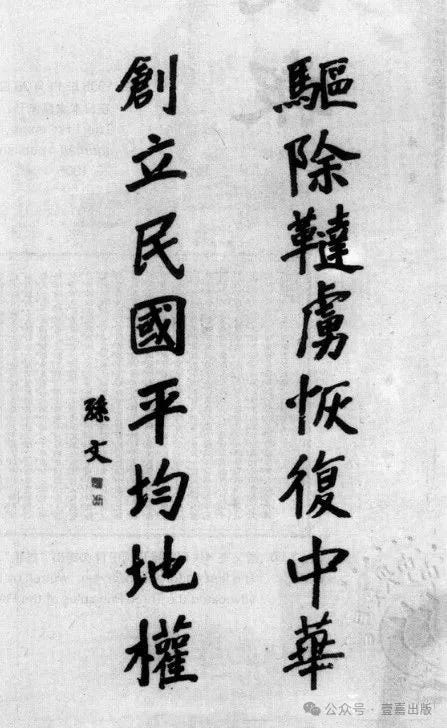 驅除韃虜恢復中華
創立民國平均地權
孫文
公众号·壹嘉出版